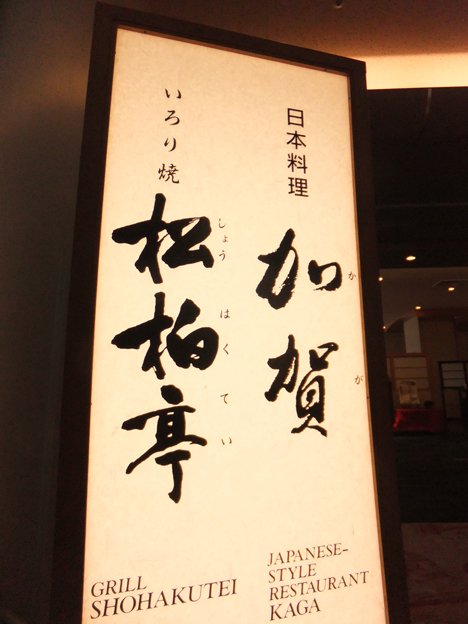 日本料理
加賀
かが
いろり焼
松柏亭
しょうはくてい
JAPANESE-
STYLE
RESTAURANT
KAGA
GRILL
SHOHAKUTEI